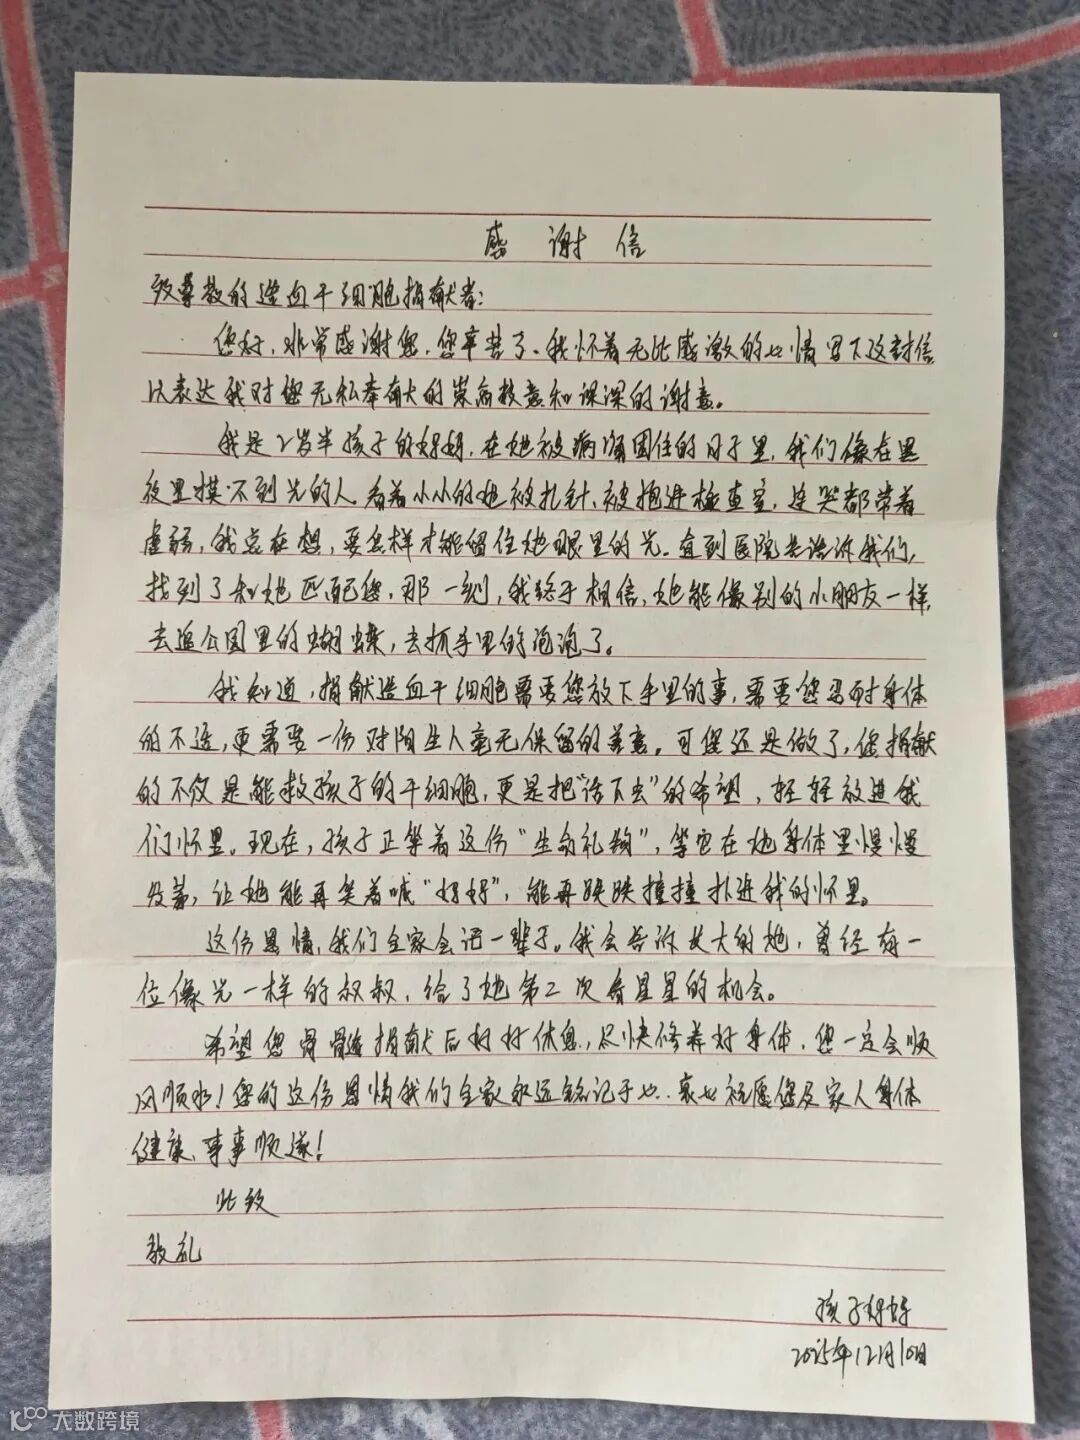 感谢信
致尊敬的造血干细胞捐献者:
您好,非常感谢您,您辛苦了、我怀着无比感激的心情写下这封信
以表达我对您无私奉献的崇高敬意和深深的谢意。
我是2岁半孩子的妈妈,在她被病痛困住的日子里,我们像在黑
夜里摸不到光的人,看着小小的她被扎针、被抱进检查室,连哭都带着
虚弱,我总在想,要怎样才能留住她眼里的光。直到医院告诉我们,
找到了和她匹配您,那一刻,我终于相信,她能像别的小朋友一样,
去追公园里的蝴蝶,去抓手里的泡泡了。
我知道,捐献造血干细胞需要您放下手里的事,需要您忍耐身体
的不适,更需要一份对陌生人毫无保留的善意。可您还是做了,您捐献
的不仅是能救孩子的干细胞,更是把“活下去”的希望,轻轻放进我
们怀里。现在,孩子正等着这份“生命礼物”,等它在她身体里慢慢
发芽,让她能再笑着喊“妈妈”,能再跌跌撞撞扑进我的怀里。
这份恩情,我们全家会记一辈子。我会告诉长大的她,曾经有一
位像光一样的叔叔,给了她第二次看星星的机会。
希望您骨髓捐献后好好休息,尽快修养好身体,您一定会顺
风顺水!您的这份恩情我们全家永远铭记于心..衷心祝愿您及家人身体
健康、事事顺遂!
此致
敬礼
孩子妈妈
2025年12月10日
大数跨境